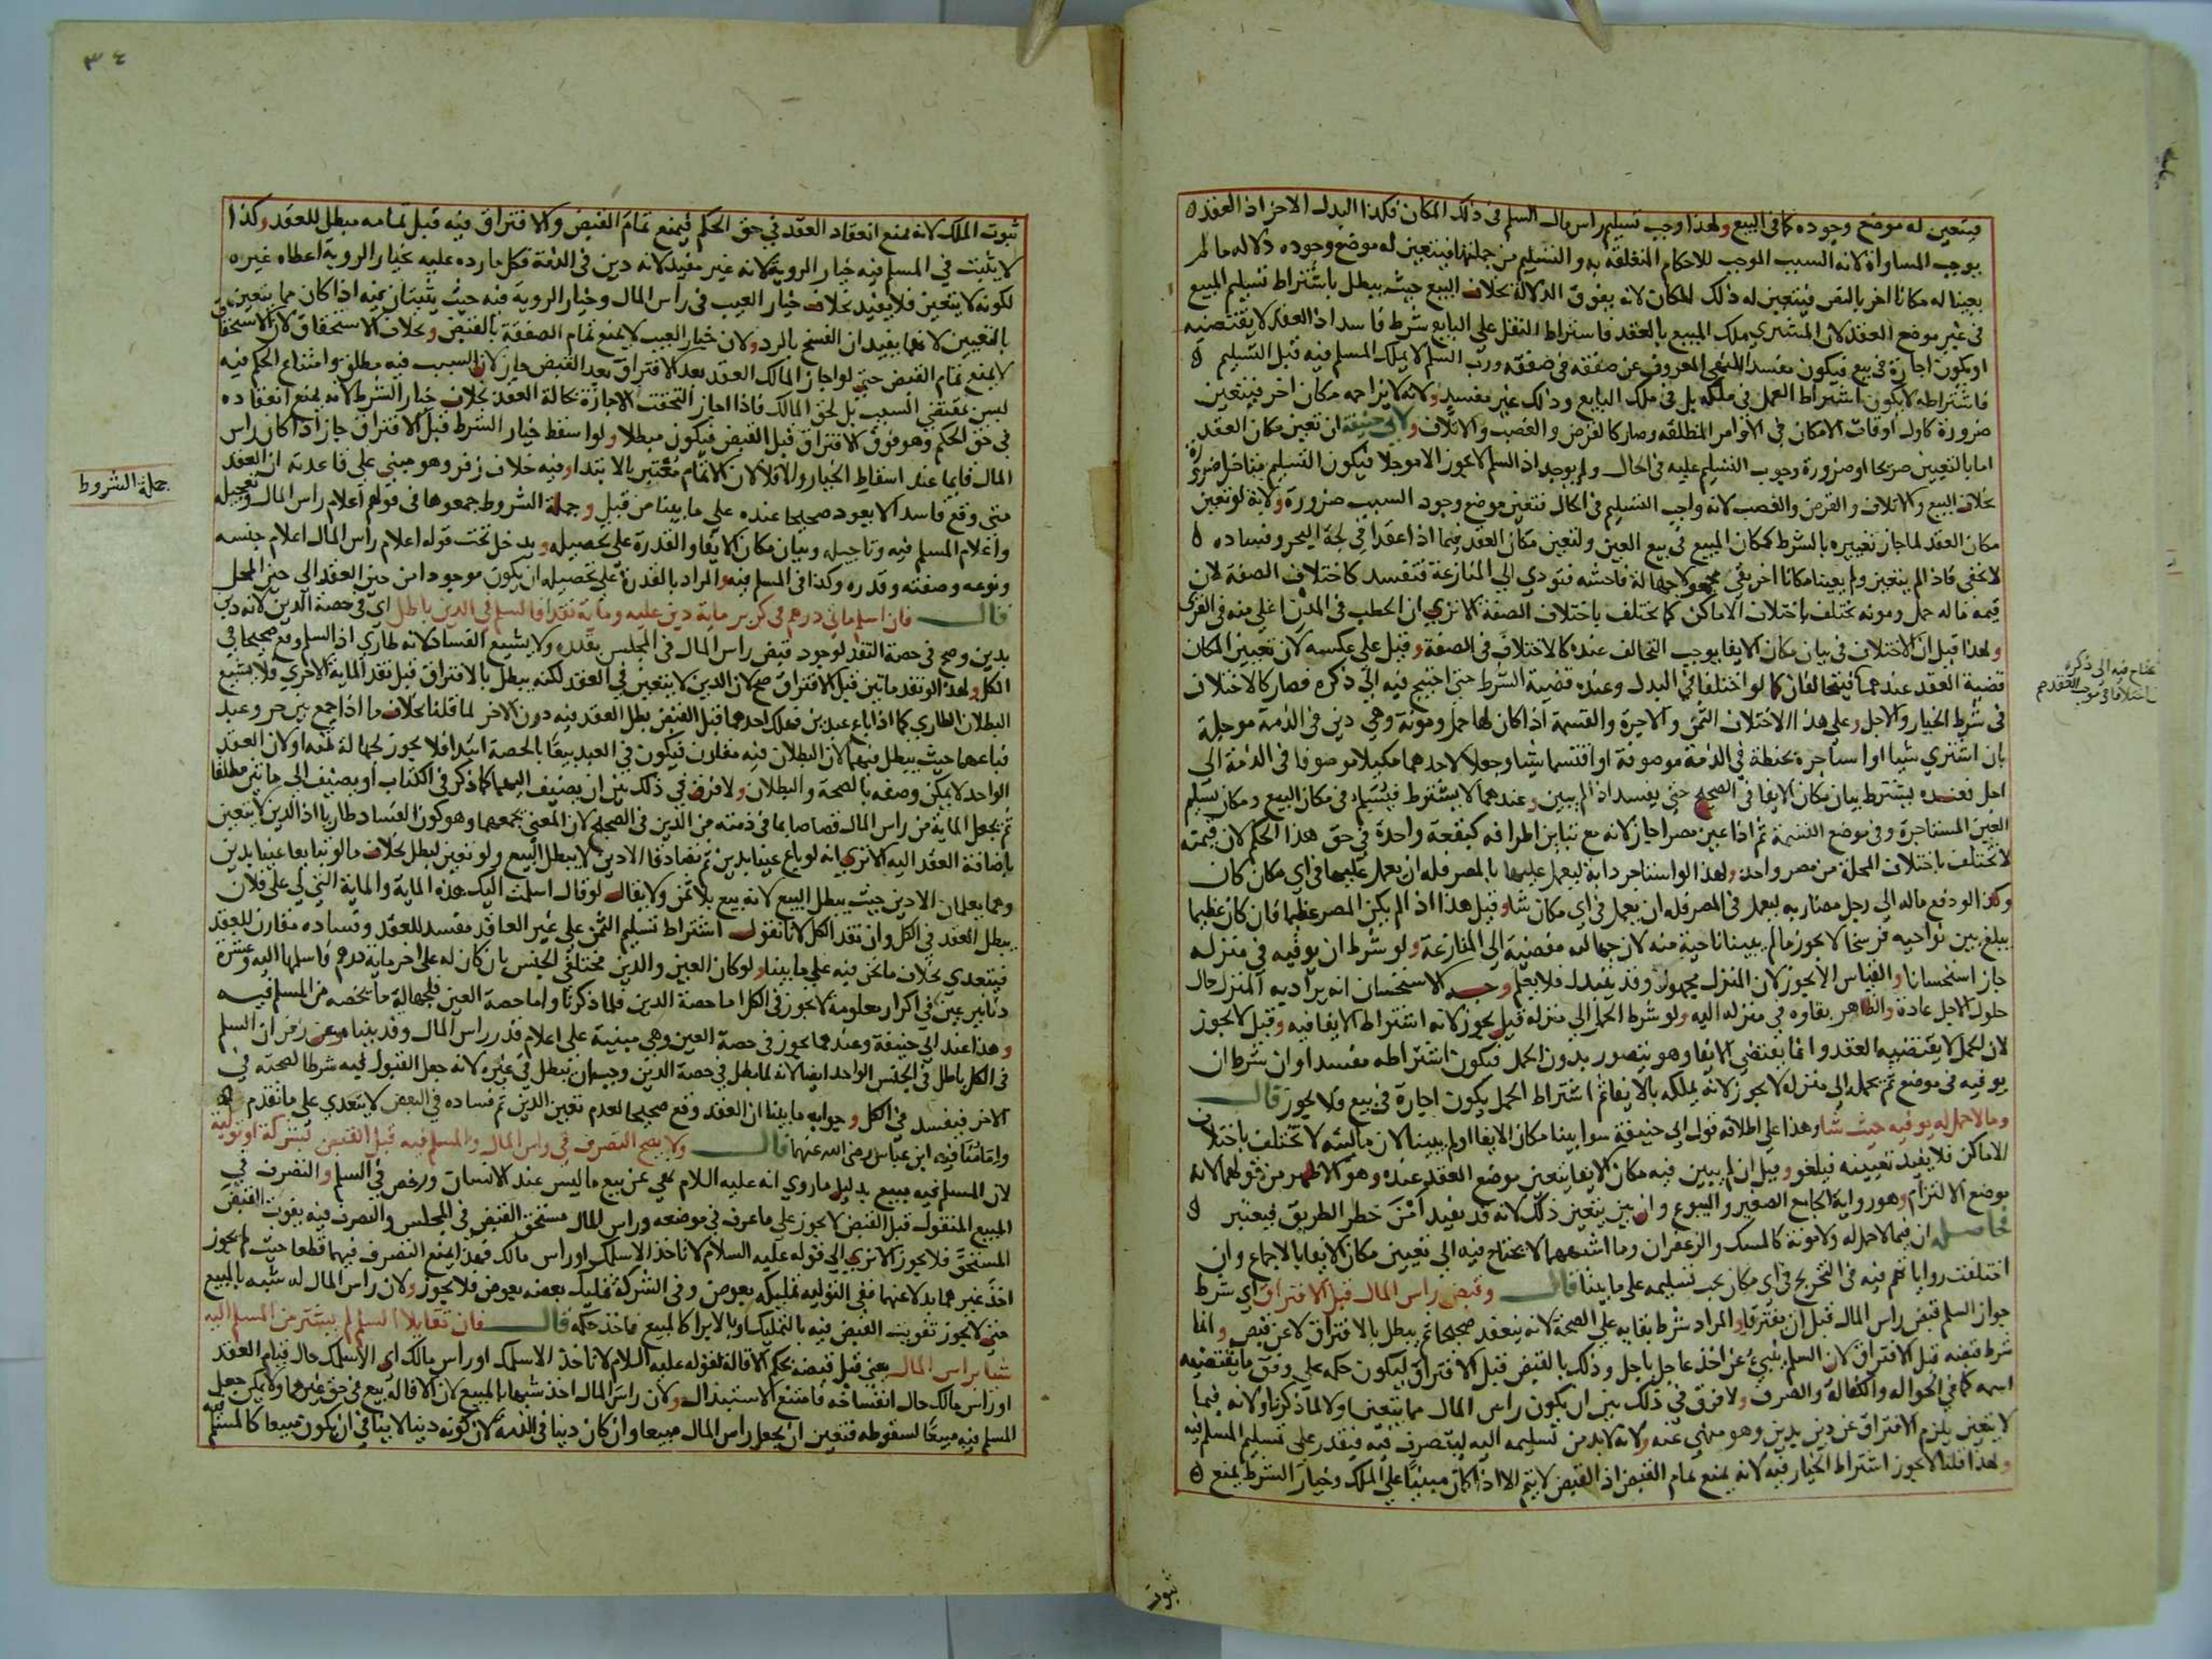 فيتعين له موضع وجوده كما في البيع ولهذا وجب تسليم راس مال السلم في ذلك المكان فكذا البدل الاخر اذ العقد
يوجب المساواة لانه السبب الموجب للاحكام المتعلقة به والتسليم من جملتها فيتعين له موضع وجوده دلالة ما لم
يعينا له مكانا اخر بالنص فيتعين له ذلك المكان لانه يفوق الدلالة بخلاف البيع حيث يبطل باشتراط تسليم المبيع
في غير موضع العقد لان المشتري ملك المبيع بالعقد فاشتراط النقل على البايع شرط فاسد اذ العقد لا يقتضيه
او يكون اجارة في بيع فيكون مفسدا للنهي المعروف عن صفقة في صفقة ورب السلم لا يملك المسلم فيه قبل التسليم
فاشتراطه لا يكون اشتراط العمل في ملكه بل في ملك البايع وذلك غير مفسد ولانه لا يزاحمه مكان اخر فيتعين
ضرورة كاول اوقات الامكان في الاوامر المطلقة وصار كالقرض والغصب والاتلاف ولابي حنيفة ان تعين مكان العقد
اما بالتعيين صريحا او ضرورة وجوب التسليم عليه في الحال ولم يوجد اذ السلم لا يجوز الا موجلا فيكون التسليم متاخرا ضرورة
بخلاف البيع والاتلاف والقرض والغصب لانه واجب التسليم في الحال فتعين موضع وجود السبب ضرورة ولانه لو تعين
مكان العقد لما جاز تغييره بالشرط كمكان المبيع في بيع العين ولتعين مكان العقد فيما اذا عقدا في لجة البحر وفساده
لا يخفى فاذا لم يتعين ولم يعينا مكانا اخر بقي مجهولا جهالة فاحشة فتودي الى المنازعة فتفسد كاختلاف الصفة لان
قيمة ما له حمل ومونة تختلف باختلاف الاماكن كما تختلف باختلاف الصفة الا ترى ان الحطب في المدن اغلى منه في القرى
ولهذا قيل ان الاختلاف في بيان مكان الايفا يوجب التحالف عنده كالاختلاف في الصفة وقيل على عكسه لان تعيين المكان
قضية العقد عندهما فيتحالفان كما لو اختلفا في البدل وعنده قضية الشرط حتى احتيج فيه الى ذكره فصار كالاختلاف
في شرط الخيار والاجل وعلى هذا الاختلاف الثمن والاجرة والقسمة اذا كان لها حمل ومونة وهي دين في الذمة موجلة
بان اشترى شيا او استاجره بحنطة في الذمة موصوفة او اقتسما شيا وجعلا لاحدهما مكيلا موصوفا في الذمة الى
اجل فعنده يشترط بيان مكان الايفا في الصحيح حتى يفسد اذا لم يبين وعندهما لا يشترط فيسلم في مكان البيع ومكان تسليم
العين المستاجرة وفي موضع القسمة ثم اذا عين مصرا جاز لانه مع تباين اطرافه كبقعة واحدة في حق هذا الحكم لان قيمته
لا تختلف باختلاف المحلة من مصر واحد ولهذا لو استاجر دابة ليعمل عليها بالمصر فله ان يعمل عليها في اي مكان كان
وكذا لو دفع ماله الى رجل مضاربة ليعمل في المصر فله ان يعمل في اي مكان شا وقيل هذا اذا لم يكن المصر عظيما فان كان عظيما
يبلغ بين نواحيه فرسخا لا يجوز ما لم يبينا ناحية منه لان جهالته مفضية الى المنازعة ولو شرط ان يوفيه في منزله
جاز استحسانا والقياس لا يجوز لان المنزل مجهول وقد يتبدل فلا يعلم وجه الاستحسان انه يراد به المنزل حال
حلول الاجل عادة والظاهر بقاوه في منزله اليه ولو شرط الحمل الى منزله قيل يجوز لانه اشتراط الايفا فيه وقيل لا يجوز
لان الحمل لا يقتضيه العقد وانما يقتضي الايفا وهو يتصور بدون الحمل فيكون اشتراطه مفسدا وان شرط ان
يوفيه في موضع ثم يحمله الى منزله لا يجوز لانه يملكه بالايفا ثم اشتراط الحمل يكون اجارة في بيع فلا يجوز قال
وما لا حمل له يوفيه حيث شا وهذا على اطلاقه قول ابي حنيفة سوا بينا مكان الايفا او لم يبينا لان ماليته لا تختلف باختلاف
الاماكن فلا يفيد تعيينه فيلغو وقيل ان لم يبين فيه مكان الايفا يتعين موضع العقد عنده وهو الاظهر من قولهما لانه
موضع الالتزام وهو رواية الجامع الصغير والبيوع وان بين يتعين ذلك لانه قد يفيد امن خطر الطريق فيعتبر
فحاصله ان فيما لا حمل له ولا مونة كالمسك والزعفران وما اشبههما لا يحتاج فيه الى تعيين مكان الايفا بالاجماع وان
اختلفت رواياتهم فيه في التخريج في اي مكان يجب تسليمه على ما بينا قال وقبض راس المال قبل الافتراق اي شرط
جواز السلم قبض راس المال قبل ان يفترقا والمراد شرط بقايه على الصحة لانه ينعقد صحيحا ثم يبطل بالافتراق لا عن قبض وانما
شرط قبضه قبل الافتراق لان السلم ينبئ عن اخذ عاجل باجل وذلك بالقبض قبل الافتراق ليكون حكمه على وفق ما يقتضيه
اسمه كما في الحوالة والكفالة والصرف ولا فرق في ذلك بين ان يكون راس المال مما يتعين اولا لما ذكرنا ولانه فيما
لا يتعين يلزم الافتراق عن دين بدين وهو منهي عنه ولانه لا بد من تسليمه اليه ليتصرف فيه فيقدر على تسليم المسلم فيه
ولهذا قلنا لا يجوز اشتراط الخيار فيه لانه يمنع تمام القبض اذ القبض لا يتم الا اذا كان مبنيا على الملك وخيار الشرط يمنع
ثبوت
يحتاج فيه الى ذكره
٣٤
ثبوت الملك لانه يمنع انعقاد العقد في حق الحكم فيمنع تمام القبض والافتراق فيه قبل تمامه مبطل للعقد وكذا
لا يثبت في المسلم فيه خيار الروية لانه غير مفيد لانه دين في الذمة فكل ما رده عليه بخيار الروية اعطاه غيره
لكونه لا يتعين فلا يفيد بخلاف خيار العيب في راس المال وخيار الروية فيه حيث يثبتان فيه اذا كان مما يتعين
بالتعيين لانهما يفيدان الفسخ بالرد ولان خيار العيب لا يمنع تمام الصفقة بالقبض وبخلاف الاستحقاق لان الاستحقاق
لا يمنع تمام القبض حتى لو اجاز المالك العقد بعد الافتراق بعد القبض جاز لان السبب فيه مطلق وامتناع الحكم فيه
ليس بمقتضى السبب بل لحق المالك فاذا اجاز التحقت الاجازة بحالة العقد بخلاف خيار الشرط لانه يمنع انعقاده
في حق الحكم وهو فوق الافتراق قبل القبض فيكون مبطلا ولو اسقط خيار الشرط قبل الافتراق جاز اذا كان راس
المال قايما عند اسقاط الخيار والا فلا لان الاتمام معتبر بالابتدا وفيه خلاف زفر وهو مبني على قاعدته ان العقد
متى وقع فاسدا لا يعود صحيحا عنده على ما بينا من قبل وجملة الشروط جمعوها في قولهم اعلام راس المال وتعجيله
واعلام المسلم فيه وتاجيله وبيان مكان الايفا والقدرة على تحصيله ويدخل تحت قوله اعلام راس المال اعلام جنسه
ونوعه وصفته وقدره وكذا في المسلم فيه والمراد بالقدرة على تحصيله ان يكون موجودا من حين العقد الى حين المحل
قال فان اسلم مايتي درهم في كر بر ماية دين عليه وماية نقدا فالسلم في الدين باطل اي في حصة الدين لانه دين
بدين وصح في حصة النقد لوجود قبض راس المال في المجلس بقدره ولا يشيع الفساد لانه طاري اذ السلم وقع صحيحا في
الكل ولهذا لو نقد مايتين قبل الافتراق صح لان الدين لا يتعين في العقد لكنه يبطل بالافتراق قبل نقد الماية الاخرى فلا يشيع
البطلان الطاري كما اذا باع عبدين فهلك احدهما قبل القبض بطل العقد فيه دون الاخر لما قلنا بخلاف ما اذا جمع بين حر وعبد
فباعهما حيث يبطل فيهما لان البطلان فيه مقارن فيكون في العبد بيعا بالحصة ابتدا فلا يجوز لجهالة ثمنه او لان العقد
الواحد لا يمكن وصفه بالصحة والبطلان ولا فرق في ذلك بين ان يضيف اليهما كما ذكر في الكتاب او يضيف الى مايتين مطلقا
ثم يجعل الماية من راس المال قصاصا بما في ذمته من الدين في الصحيح لان المعنى يجمعهما وهو كون الفساد طاريا اذ الدين لا يتعين
باضافة العقد اليه الا ترى انه لو باع عينا بدين ثم تصادقا الا دين لا يبطل البيع ولو تعين لبطل بخلاف ما لو تبايعا عينا بدين
وهما يعلمان الا دين حيث يبطل البيع لانه بيع بلا ثمن ولا يقال لو قال اسلمت اليك هذه الماية والماية التي لي على فلان
يبطل العقد في الكل وان نقد الكل لانا نقول اشتراط تسليم الثمن على غير العاقد مفسد للعقد وفساده مقارن للعقد
فيتعدى بخلاف ما نحن فيه على ما بينا ولو كان العين والدين مختلفي الجنس بان كان له على اخر ماية درهم فاسلمها اليه وعشرة
دنانير عين في اكرار معلومة لا يجوز في الكل اما حصة الدين فلما ذكرنا واما حصة العين فلجهالة ما يخصه من المسلم فيه
وهذا عند ابي حنيفة وعندهما يجوز في حصة العين وهي مبنية على اعلام قدر راس المال وقد بيناه وعن زفر ان السلم
في الكل باطل في الجنس الواحد ايضا لانه لما بطل في حصة الدين وجب ان يبطل في غيره لانه جعل القبول فيه شرطا لصحته في
الاخر فيفسد في الكل وجوابه ما بينا ان العقد وقع صحيحا لعدم تعين الدين ثم فساده في البعض لا يتعدى على ما تقدم
وامامنا فيه ابن عباس رضي الله عنهما قال ولا يصح التصرف في راس المال والمسلم فيه قبل القبض بشركة او تولية
لان المسلم فيه مبيع بدليل ما روي انه عليه السلام نهى عن بيع ما ليس عند الانسان ورخص في السلم والتصرف في
المبيع المنقول قبل القبض لا يجوز على ما عرف في موضعه وراس المال مستحق القبض في المجلس والتصرف فيه يفوت القبض
المستحق فلا يجوز الا ترى الى قوله عليه السلام لا تاخذ الا سلمك او راس مالك فهذا يمنع التصرف فيهما قطعا حيث لم يجوز
اخذ غيرهما بدلا عنهما ففي التولية تمليكه بعوض وفي الشركة تمليك بعضه بعوض فلا يجوز ولان راس المال له شبه بالمبيع
حتى لا يجوز تفويت القبض فيه بالتمليك او بالابرا كالمبيع فاخذ حكمه قال فان تقايلا السلم لم يشتر من المسلم اليه
شيا براس المال يعني قبل قبضه بحكم الاقالة لقوله عليه السلام لا تاخذ الا سلمك او راس مالك اي الا سلمك حال قيام العقد
او راس مالك حال انفساخه فامتنع الاستبدال ولان راس المال اخذ شبها بالمبيع لان الاقالة بيع في حق غيرهما ولا يمكن جعل
المسلم فيه مبيعا لسقوطه فتعين ان يجعل راس المال مبيعا وان كان دينا في الذمة لان كونه دينا لا ينافي ان يكون مبيعا كالمسلم فيه
جملة الشروط